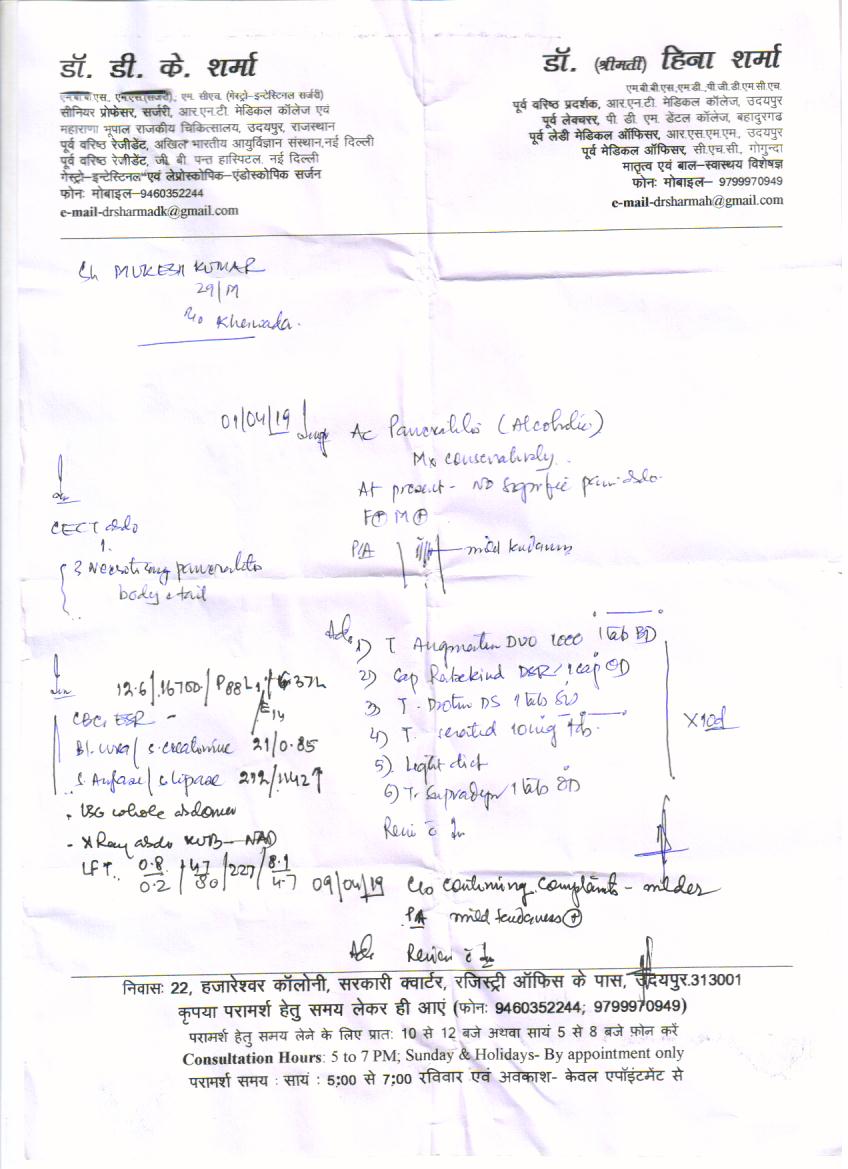 डॉ. डी. के. शर्मा
एम.बी.बी.एस., एम.एस.(सर्जरी)., एम. सीएच. (गेस्ट्रो-इन्टेस्टिनल सर्जरी)
सीनियर प्रोफेसर, सर्जरी, आर.एन.टी. मेडिकल कॉलेज एवं
महाराणा भूपाल राजकीय चिकित्सालय, उदयपुर, राजस्थान
पूर्व वरिष्ठ रेजीडेंट, अखिल भारतीय आयुर्विज्ञान संस्थान,नई दिल्ली
पूर्व वरिष्ठ रेजीडेंट, जी. बी. पन्त हास्पिटल, नई दिल्ली
गेस्ट्रो-इन्टेस्टिनल एवं लेप्रोस्कोपिक-एंडोस्कोपिक सर्जन
फोनः मोबाइल-9460352244
e-mail-drsharmadk@gmail.com
डॉ. (श्रीमती) हिना शर्मा
एम.बी.बी.एस.,एम.डी.,पी.जी.डी.एम.सी.एच.
पूर्व वरिष्ठ प्रदर्शक, आर.एन.टी. मेडिकल कॉलेज, उदयपुर
पूर्व लेक्चरर, पी. डी. एम. डेंटल कॉलेज, बहादुरगढ
पूर्व लेडी मेडिकल ऑफिसर, आर.एस.एम.एम., उदयपुर
पूर्व मेडिकल ऑफिसर, सी.एच.सी., गोगुन्दा
मातृत्व एवं बाल-स्वास्थय विशेषज्ञ
फोनः मोबाइल- 9799970949
e-mail-drsharmah@gmail.com
Sh MUKESH KUMAR
29/M
R/o Kherwada.
01/04/19 Imp Ac Pancreatitis (Alcoholic)
Mx conservatively.
At present - No significt pain abdo.
F⊕ M⊕
P/A mild tenderness
CECT abdo
1.
Necrotizing pancreatitis
body & tail
Adv 1) T Augmentin DUO 1000 1 tab BD
2) Cap Rabekind DSR 1 cap OD
3) T. Drotin DS 1 tab
4) T. 10mg
5) Light diet
6) T. Supradyn 1 tab OD
X 10d
Review c̄ In
Inv 12.6/16700/P88L
E
CBC, ESR -
Bl. urea/ s. creatinine 21/0.85
S. Amylase/ s lipase 212/1142↑
• USG whole abdomen
- X Ray abdo KUB - NAD
LFT. 0.8/0.2 / 47/80 /227/ 8.1/4.7
09/04/19 C/o continuing complaints - milder
P/A mild tenderness ⊕
Adv Review c̄ In
निवासः 22, हजारेश्वर कॉलोनी, सरकारी क्वार्टर, रजिस्ट्री ऑफिस के पास, उदयपुर.313001
कृपया परामर्श हेतु समय लेकर ही आएं (फोनः 9460352244; 9799970949)
परामर्श हेतु समय लेने के लिए प्रातः 10 से 12 बजे अथवा सायं 5 से 8 बजे फ़ोन करें
Consultation Hours: 5 to 7 PM; Sunday & Holidays- By appointment only
परामर्श समय : सायं : 5:00 से 7:00 रविवार एवं अवकाश- केवल एपॉइंटमेंट से